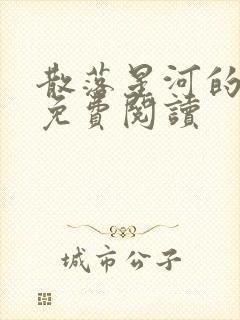 散落星河的
免費閱讀
城市公子